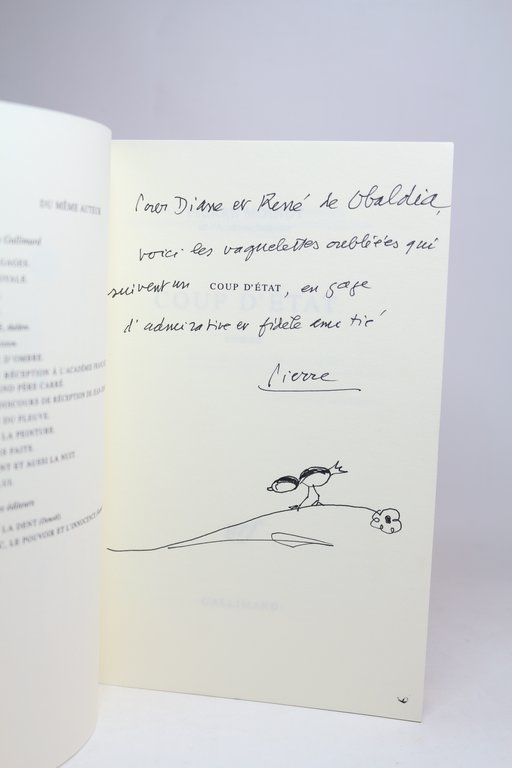 DU MÊME AUTEUR
Gallimard
D'OMBRE.
RÉCEPTION À L'ACADÉMIE
PÈRE CARRÉ.
DISCOURS DE RÉCEPTION DE
DU FLEUVE.
LA PEINTURE.
ET AUSSI LA NUIT
éditeurs
LA DENT
LE POUVOIR ET L'INNOCENCE
Pour Diane et René de Obaldia,
voici les vaguelettes oubliées qui
suivent un COUP D'ÉTAT, en gage
d'admirative et fidèle amitié
Pierre
COUP D'ÉTAT
GALLIMARD